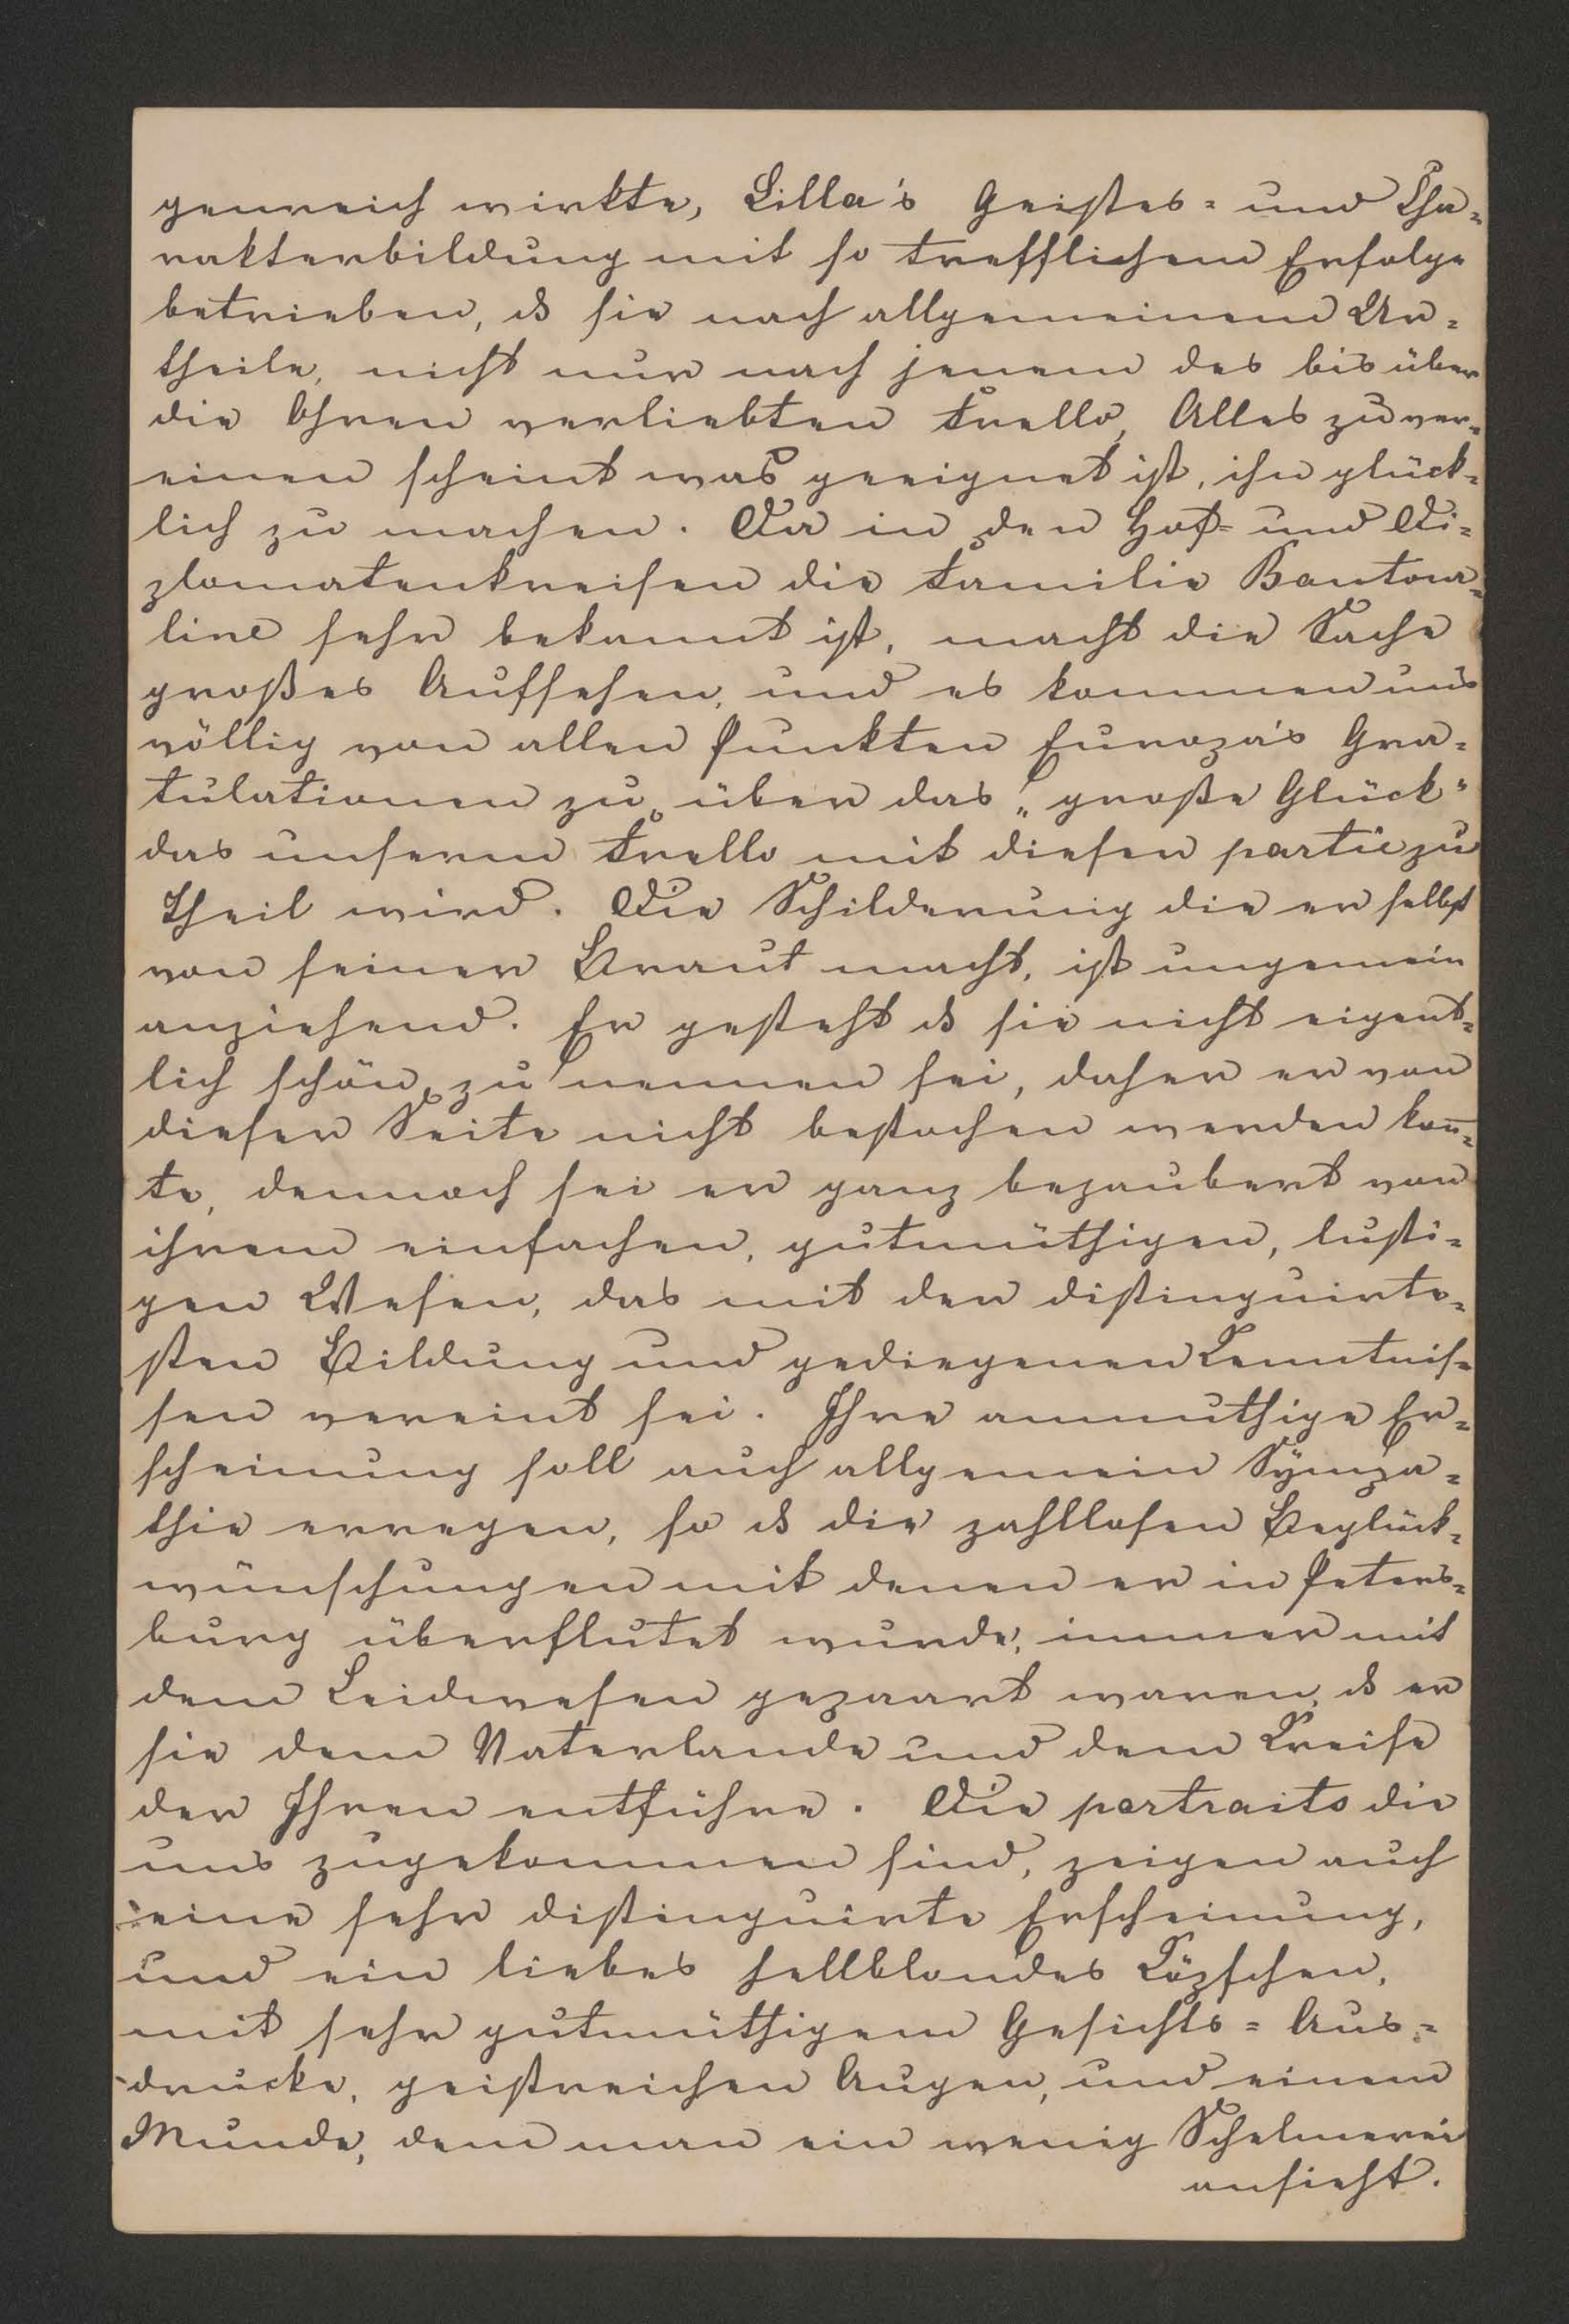 genreich wirkte, Lilla's Geistes= und Cha=
rakterbildung mit so trefflichem Erfolge
betrieben, ds sie nach allgemeinem Ur=
theile, nicht nur nach jenem des bis über
die Ohren verliebten Frello, Alles zu ver=
einen scheint was geeignet ist, ihn glück=
lich zu machen. Da in den Hof= und Di=
plomatenkreisen die Familie Boutour=
line sehr bekannt ist, macht die Sache
großes Aufsehen, und es kommen uns
völlig von allen Punkten Europa's Gra=
tulationen zu, über das „große Glück"
das unserem Frello mit dieser partie zu
Theil wird. Die Schilderung die er selbst
von seiner Braut macht, ist ungemein
anziehend. Er gesteht ds sie nicht eigent=
lich schön zu nennen sei, daher er von
dieser Seite nicht bestochen werden kon̅=
te, dennoch sei er ganz bezaubert von
ihrem einfachen, gutmüthigen, lusti=
gen Wesen, das mit der distinguirte=
sten Bildung und gediegenen Kenntnis=
sen vereint sei. Ihre anmuthige Er=
scheinung soll auch allgemein Sympa=
thie erregen, so ds die zahllosen Beglück=
wünschungen mit denen er in Peters=
burg überflutet wurde, immer mit
dem Leidwesen gepaart waren, ds er
sie dem Vaterlande und dem Kreise
der Ihren entführe. Die portraits die
uns zugekommen sind, zeigen auch
eine sehr distinguirte Erscheinung,
und ein liebes hellblondes Köpfchen,
mit sehr gutmüthigem Gesichts=Aus=
drucke, geistreichen Augen, und einem
Munde, dem man ein wenig Schelmerei
ansieht.